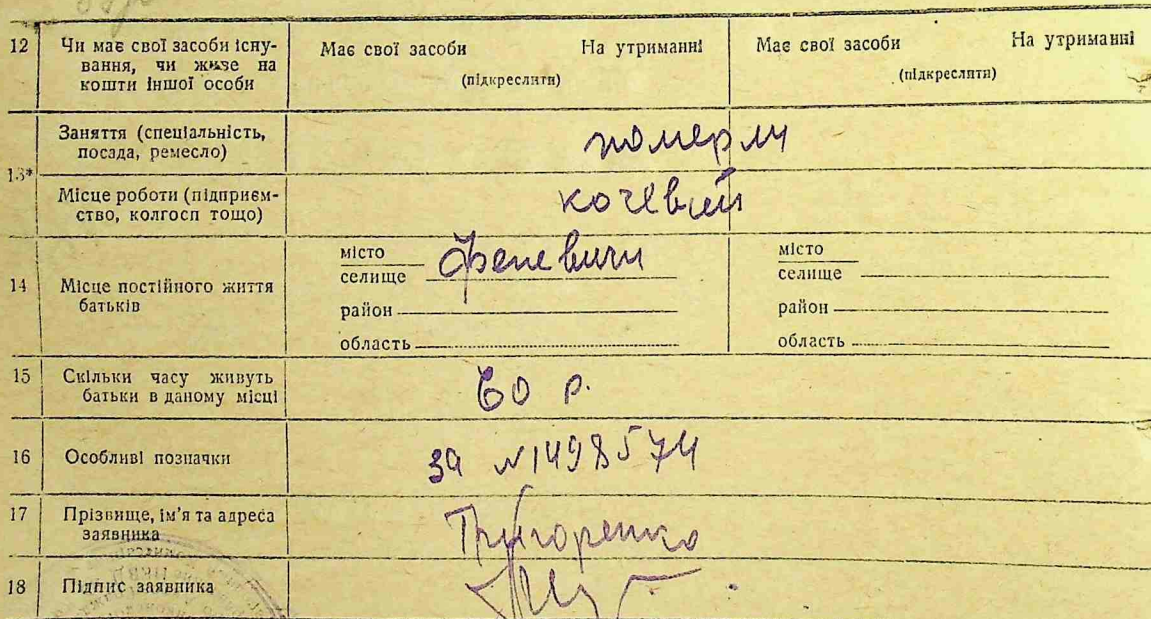 12 Чи має свої засоби існу-
вання, чи живе на
кошти іншої особи
Має свої засоби На утриманні
(підкреслити)
Має свої засоби На утриманні
(підкреслити)
13*
Заняття (спеціальність,
посада, ремесло)
померли
Місце роботи (підприєм-
ство, колгосп тощо)
14 Місце постійного життя
батьків
місто
селище Феневичи
район
область
місто
селище
район
область
15 Скільки часу живуть
батьки в даному місці
60 р.
16 Особливі позначки
за №1498574
17 Прізвище, ім'я та адреса
заявника
Григоренко
18 Підпис заявника